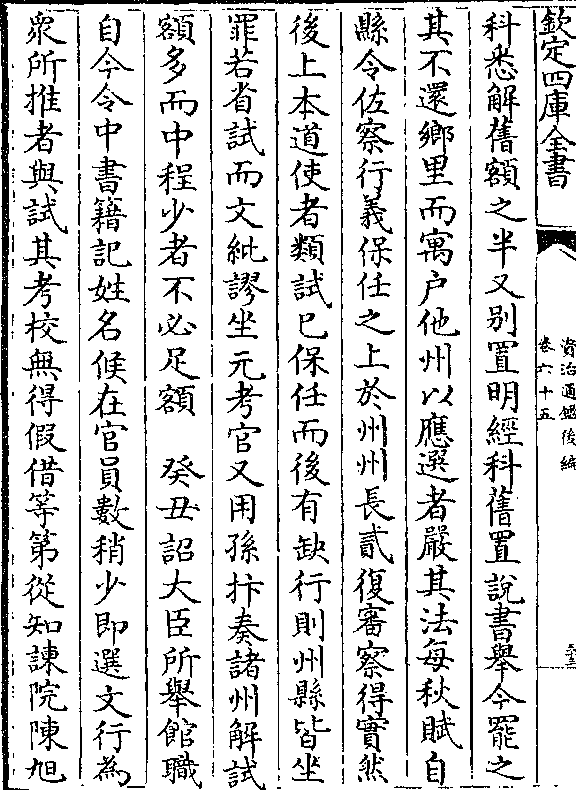 欽定四庫全書
資治通鑑後編
卷六十五
科悉解舊額之半又别置明經科舊置說書舉今罷之
其不還鄉里而寓户他州以應選者嚴其法每秋賦自
縣令佐察行義保任之上於州州長貳復審察得實然
後上本道使者類試已保任而後有缺行則州縣皆坐
罪若省試而文紕謬坐元考官又用孫抃奏諸州解試
額多而中程少者不必足額　癸丑詔大臣所舉館職
自今令中書籍記姓名候在官員數稍少即選文行為
衆所推者與試其考校無得假借等第從知諫院陳旭